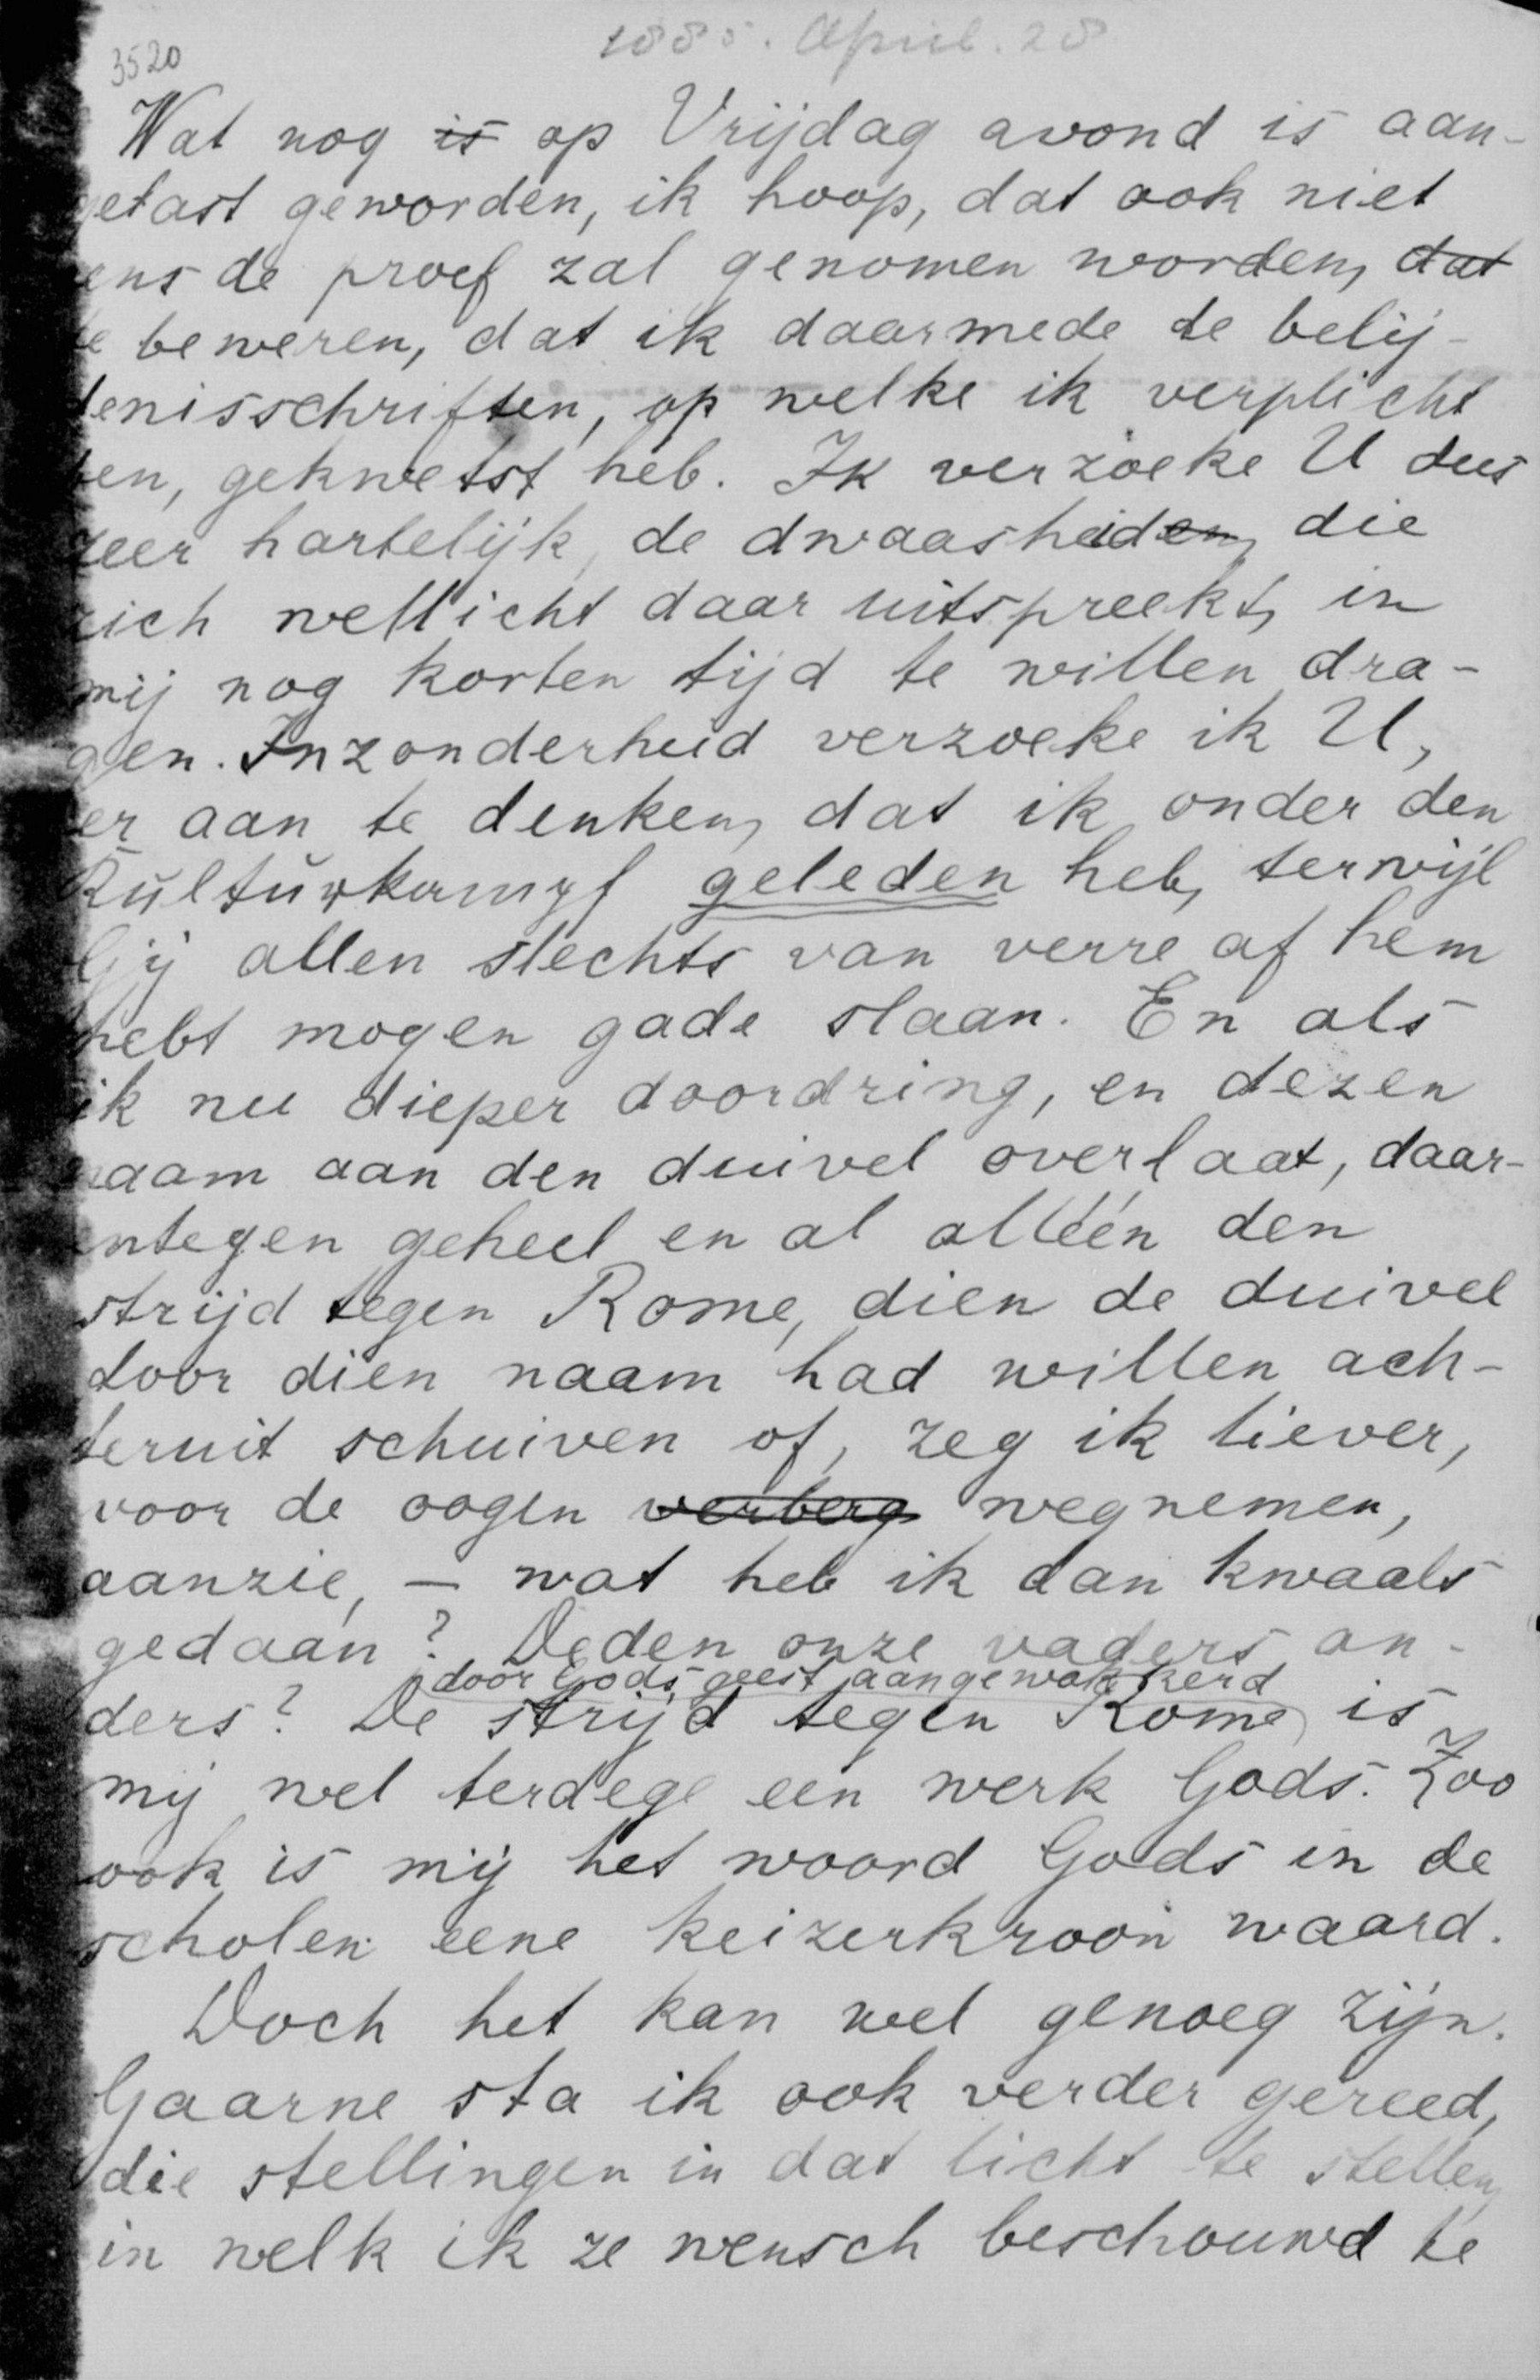 1885. April. 28
3520
Wat nog is op Vrijdag avond is aan-
getast geworden, ik hoop, dat ook niet
eens de proef zal genomen worden, dat
te beweren, dat ik daarmede de belij-
denisschriften, op welke ik verplicht
ben, gekwetst heb. Ik verzoeke U dus
zeer hartelijk, de dwaasheiden, die
zich wellicht daar uitspreekt, in
mij nog korten tijd te willen dra-
gen. Inzonderheid verzoeke ik U,
er aan te denken, dat ik onder den
Kulturkampf geleden heb, terwijl
Gij allen slechts van verre af hem
hebt mogen gade slaan. En als
ik nu dieper doordring, en dezen
naam aan den duivel overlaat, daar-
entegen geheel en al alléén den
strijd tegen Rome, dien de duivel
door dien naam had willen ach-
teruit schuiven of, zeg ik liever,
voor de oogen verberg wegnemen,
aanzie, — wat heb ik dan kwaads
gedaan? Deden onze vaders an-
door Gods geest aangewakkerd
ders? De strijd tegen Rome, is
mij wel terdege een werk Gods. Zoo
ook is mij het woord Gods in de
scholen eene keizerkroon waard.
Doch het kan wel genoeg zijn.
Gaarne sta ik ook verder gereed,
die stellingen in dat licht te stellen,
in welk ik ze wensch beschouwd te